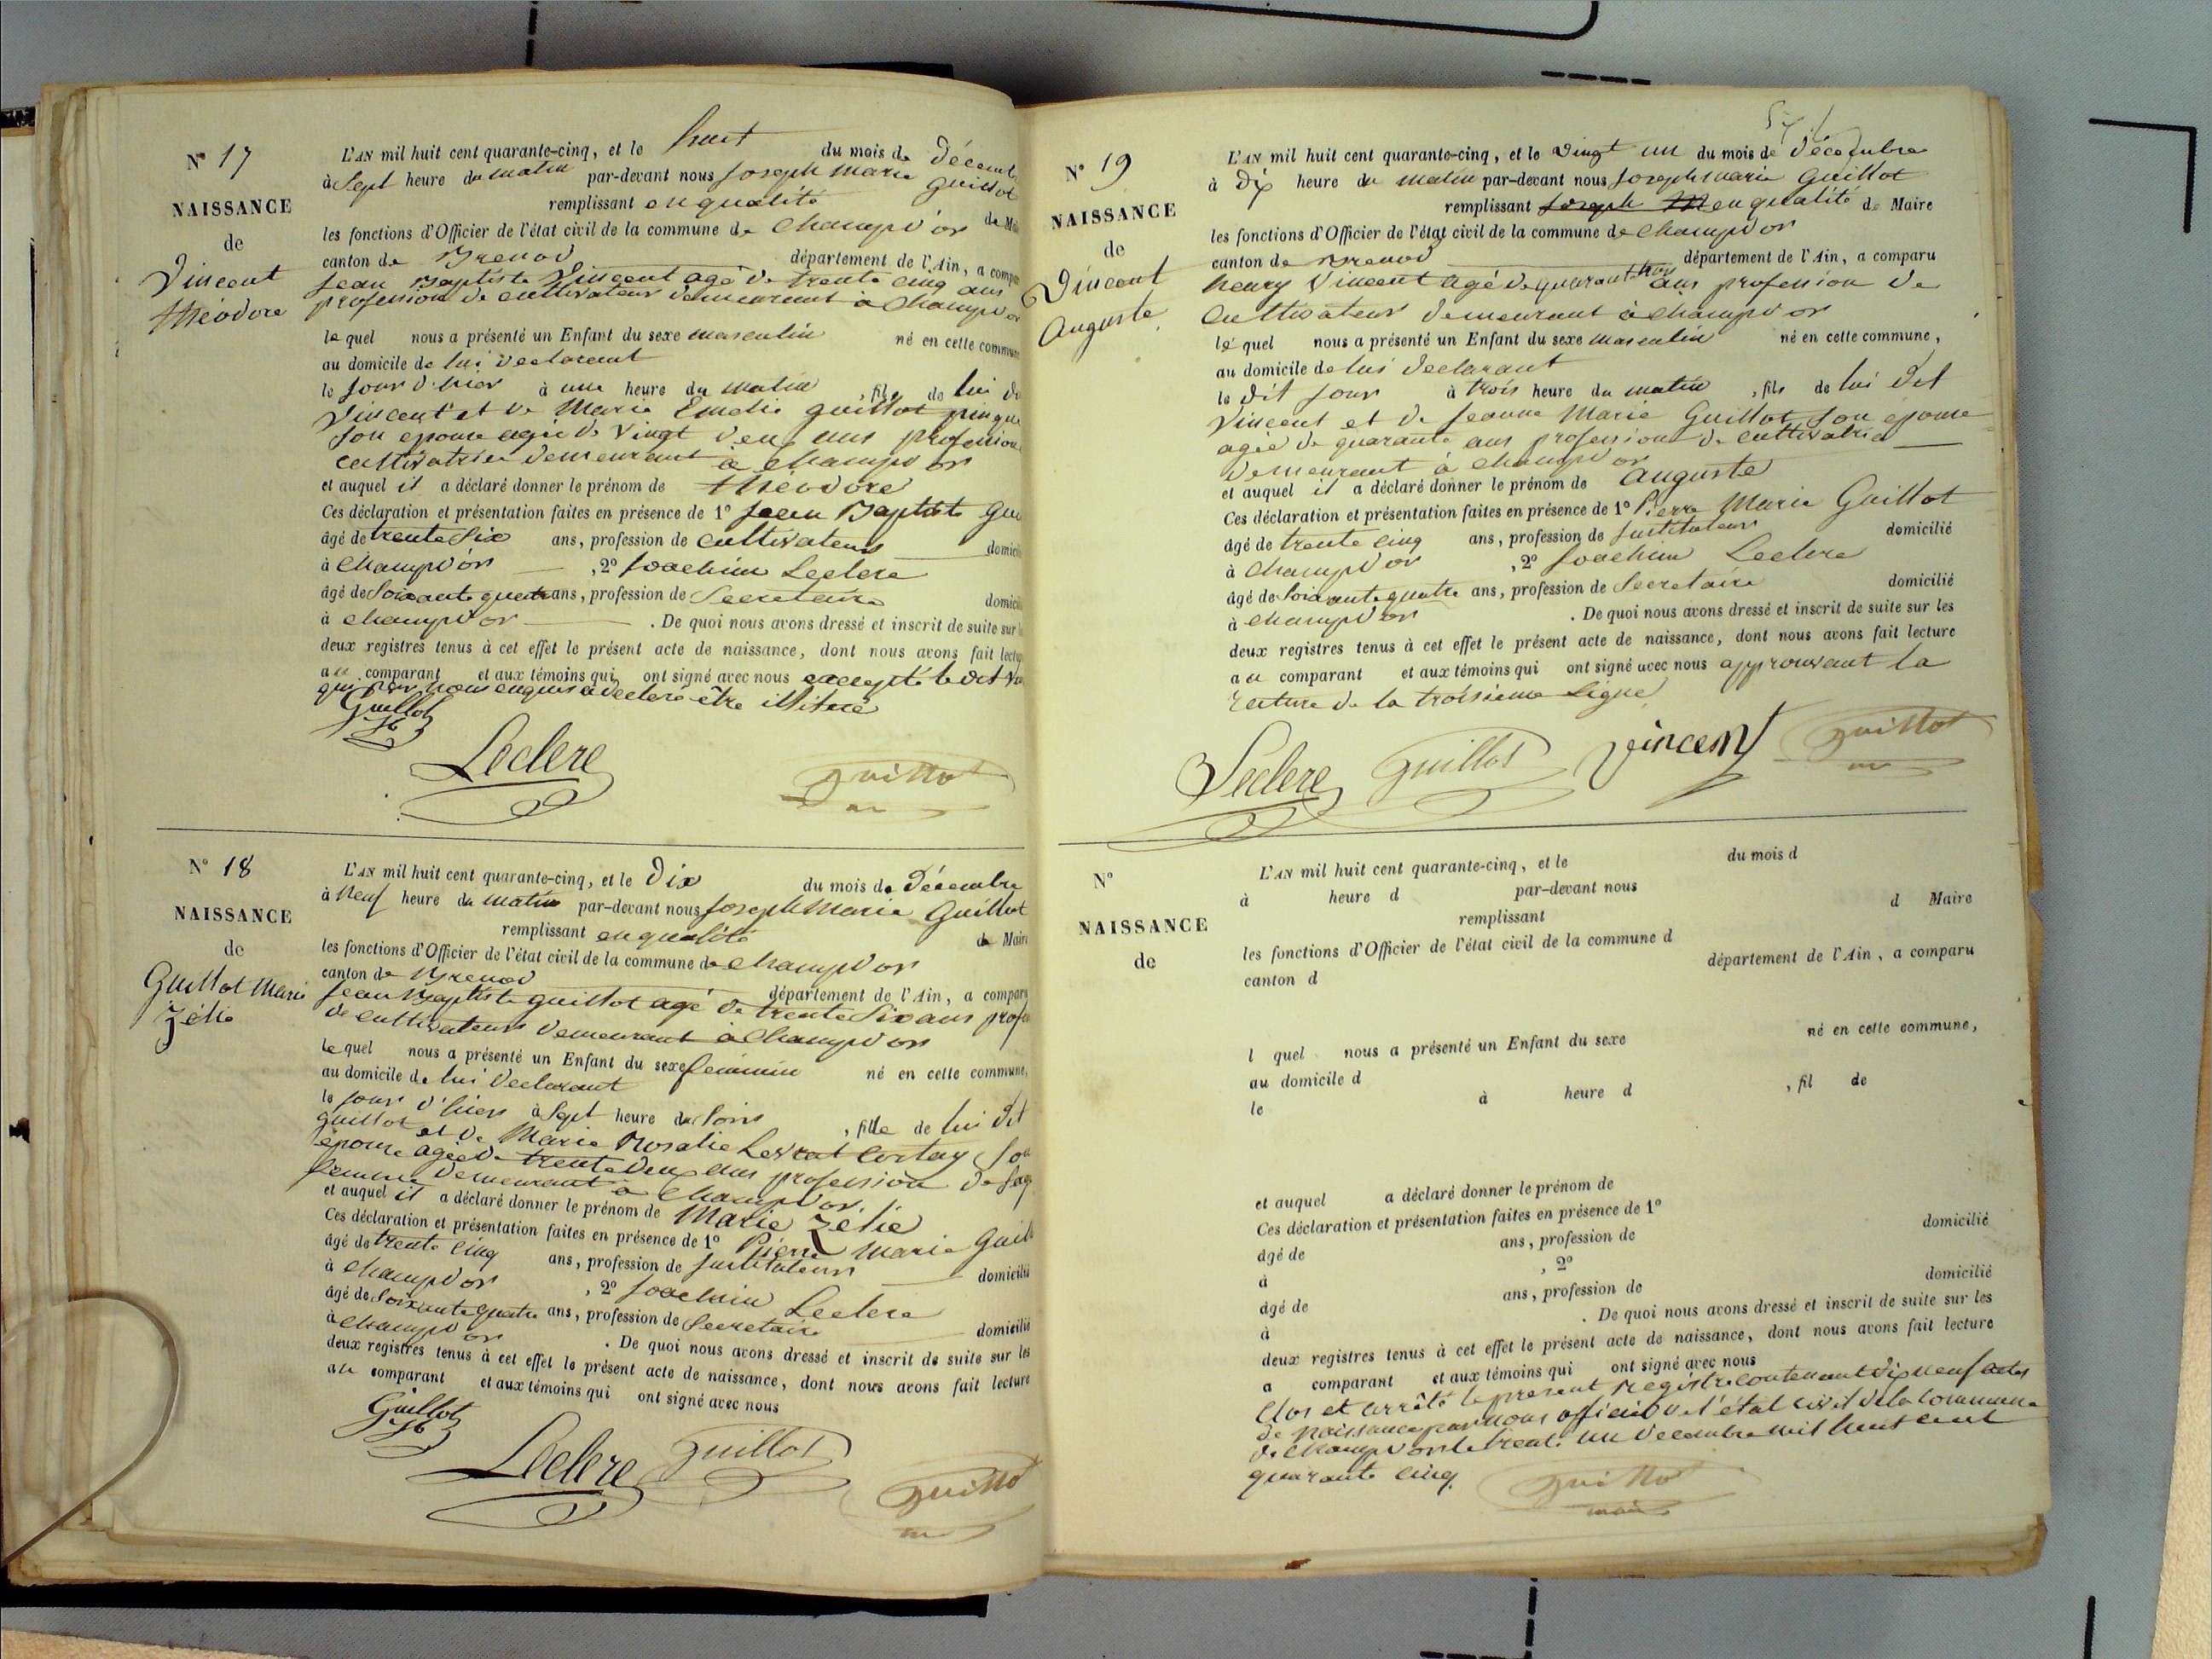 N° 17
NAISSANCE
de
Vincent
théodore
L'AN mil huit cent quarante-cinq, et le huit du mois de Décemb
à Sept heure du matin par-devant nous Joseph Marie Guillot
remplissant en qualité de Mai
les fonctions d'Officier de l'état civil de la commune de Champd'or
canton de Brenod département de l'Ain, a compa
Jean Baptiste Vincent agé de trente cinq ans
profession de cultivateur demeurant à Champd'or
le quel nous a présenté un Enfant du sexe masculin né en cette commune
au domicile de lui declarant
le jour d'hier à une heure du matin, fils de lui di
Vincent et de Marie Emelie guillot pingue
son epouse agée de vingt deux ans profession
cultivatrice demeurant à Champd'or
et auquel il a déclaré donner le prénom de théodore
Ces déclaration et présentation faites en présence de 1° Jean Baptiste Gui
âgé de trente six ans, profession de cultivateur domicili
à Champd'or, 2° Joachim Leclere
âgé de Soixante quatre ans, profession de Secretaire domicili
à Champd'or. De quoi nous avons dressé et inscrit de suite sur l
deux registres tenus à cet effet le présent acte de naissance, dont nous avons fait lectu
au comparant et aux témoins qui ont signé avec nous excepté le dit Vin
qui par nous enquis a declaré être illitéré
Guillot
Leclere
Guillot
N° 18
NAISSANCE
de
Guillot Marie
Zélie
L'AN mil huit cent quarante-cinq, et le Dix du mois de Décembre
à Neuf heure du matin par-devant nous Joseph Marie Guillot
remplissant en qualité de Maire
les fonctions d'Officier de l'état civil de la commune de Champd'or
canton de Brenod département de l'Ain, a comparu
Jean Baptiste guillot agé de trente Six ans profe
de cultivateur demeurant à Champd'or
le quel nous a présenté un Enfant du sexe féminin né en cette commune,
au domicile de lui declarant
le jour d'hier à Sept heure du Soir, fille de lui dit
guillot et de Marie Rosalie Levrat Cortay Son
épouse agée de trente deux ans profession de Sag
femme demeurant à Champd'or
et auquel il a déclaré donner le prénom de Marie Zélie
Ces déclaration et présentation faites en présence de 1° Pierre Marie Guill
âgé de trente cinq ans, profession de Instituteur domicilié
à Champd'or, 2° Joachim Leclere
âgé de Soixante quatre ans, profession de Secretaire domicilié
à Champd'or. De quoi nous avons dressé et inscrit de suite sur les
deux registres tenus à cet effet le présent acte de naissance, dont nous avons fait lecture
au comparant et aux témoins qui ont signé avec nous
Guillot
Leclere Guillot
Guillot
N° 19
NAISSANCE
de
Vincent
Auguste
L'AN mil huit cent quarante-cinq, et le vingt un du mois de Décembre
à Dix heure du matin par-devant nous Joseph marie Guillot
remplissant Joseph M en qualité de Maire
les fonctions d'Officier de l'état civil de la commune de Champd'or
canton de Brenod département de l'Ain, a comparu
henry Vincent agé de quarante trois ans profession de
cultivateur demeurant à Champd'or
le quel nous a présenté un Enfant du sexe masculin né en cette commune,
au domicile de lui declarant
le dit jour à trois heure du matin, fils de lui dit
Vincent et de jeanne Marie Guillot son epouse
agée de quarante ans profession de cultivatrice
demeurant à Champd'or
et auquel il a déclaré donner le prénom de Auguste
Ces déclaration et présentation faites en présence de 1° Pierre Marie Guillot
âgé de trente cinq ans, profession de Instituteur domicilié
à Champd'or, 2° Joachim Leclere
âgé de Soixante quatre ans, profession de Secretaire domicilié
à Champd'or. De quoi nous avons dressé et inscrit de suite sur les
deux registres tenus à cet effet le présent acte de naissance, dont nous avons fait lecture
au comparant et aux témoins qui ont signé avec nous approuvant la
rature de la troisieme ligne
Leclere Guillot Vincent Guillot
N°
NAISSANCE
de
L'AN mil huit cent quarante-cinq, et le du mois d
à heure d par-devant nous
remplissant d Maire
les fonctions d'Officier de l'état civil de la commune d
canton d département de l'Ain, a comparu
l quel nous a présenté un Enfant du sexe né en cette commune,
au domicile d
le à heure d, fil de
et auquel a déclaré donner le prénom de
Ces déclaration et présentation faites en présence de 1°
âgé de ans, profession de domicilié
à, 2°
âgé de ans, profession de domicilié
à. De quoi nous avons dressé et inscrit de suite sur les
deux registres tenus à cet effet le présent acte de naissance, dont nous avons fait lecture
a comparant et aux témoins qui ont signé avec nous
Clos et arrêté le présent registre contenant dix neuf actes
de naissance par nous officier de l'état civil de la Commune
de Champd'or le trente un decembre mil huit cent
quarante cinq.
Guillot
maire